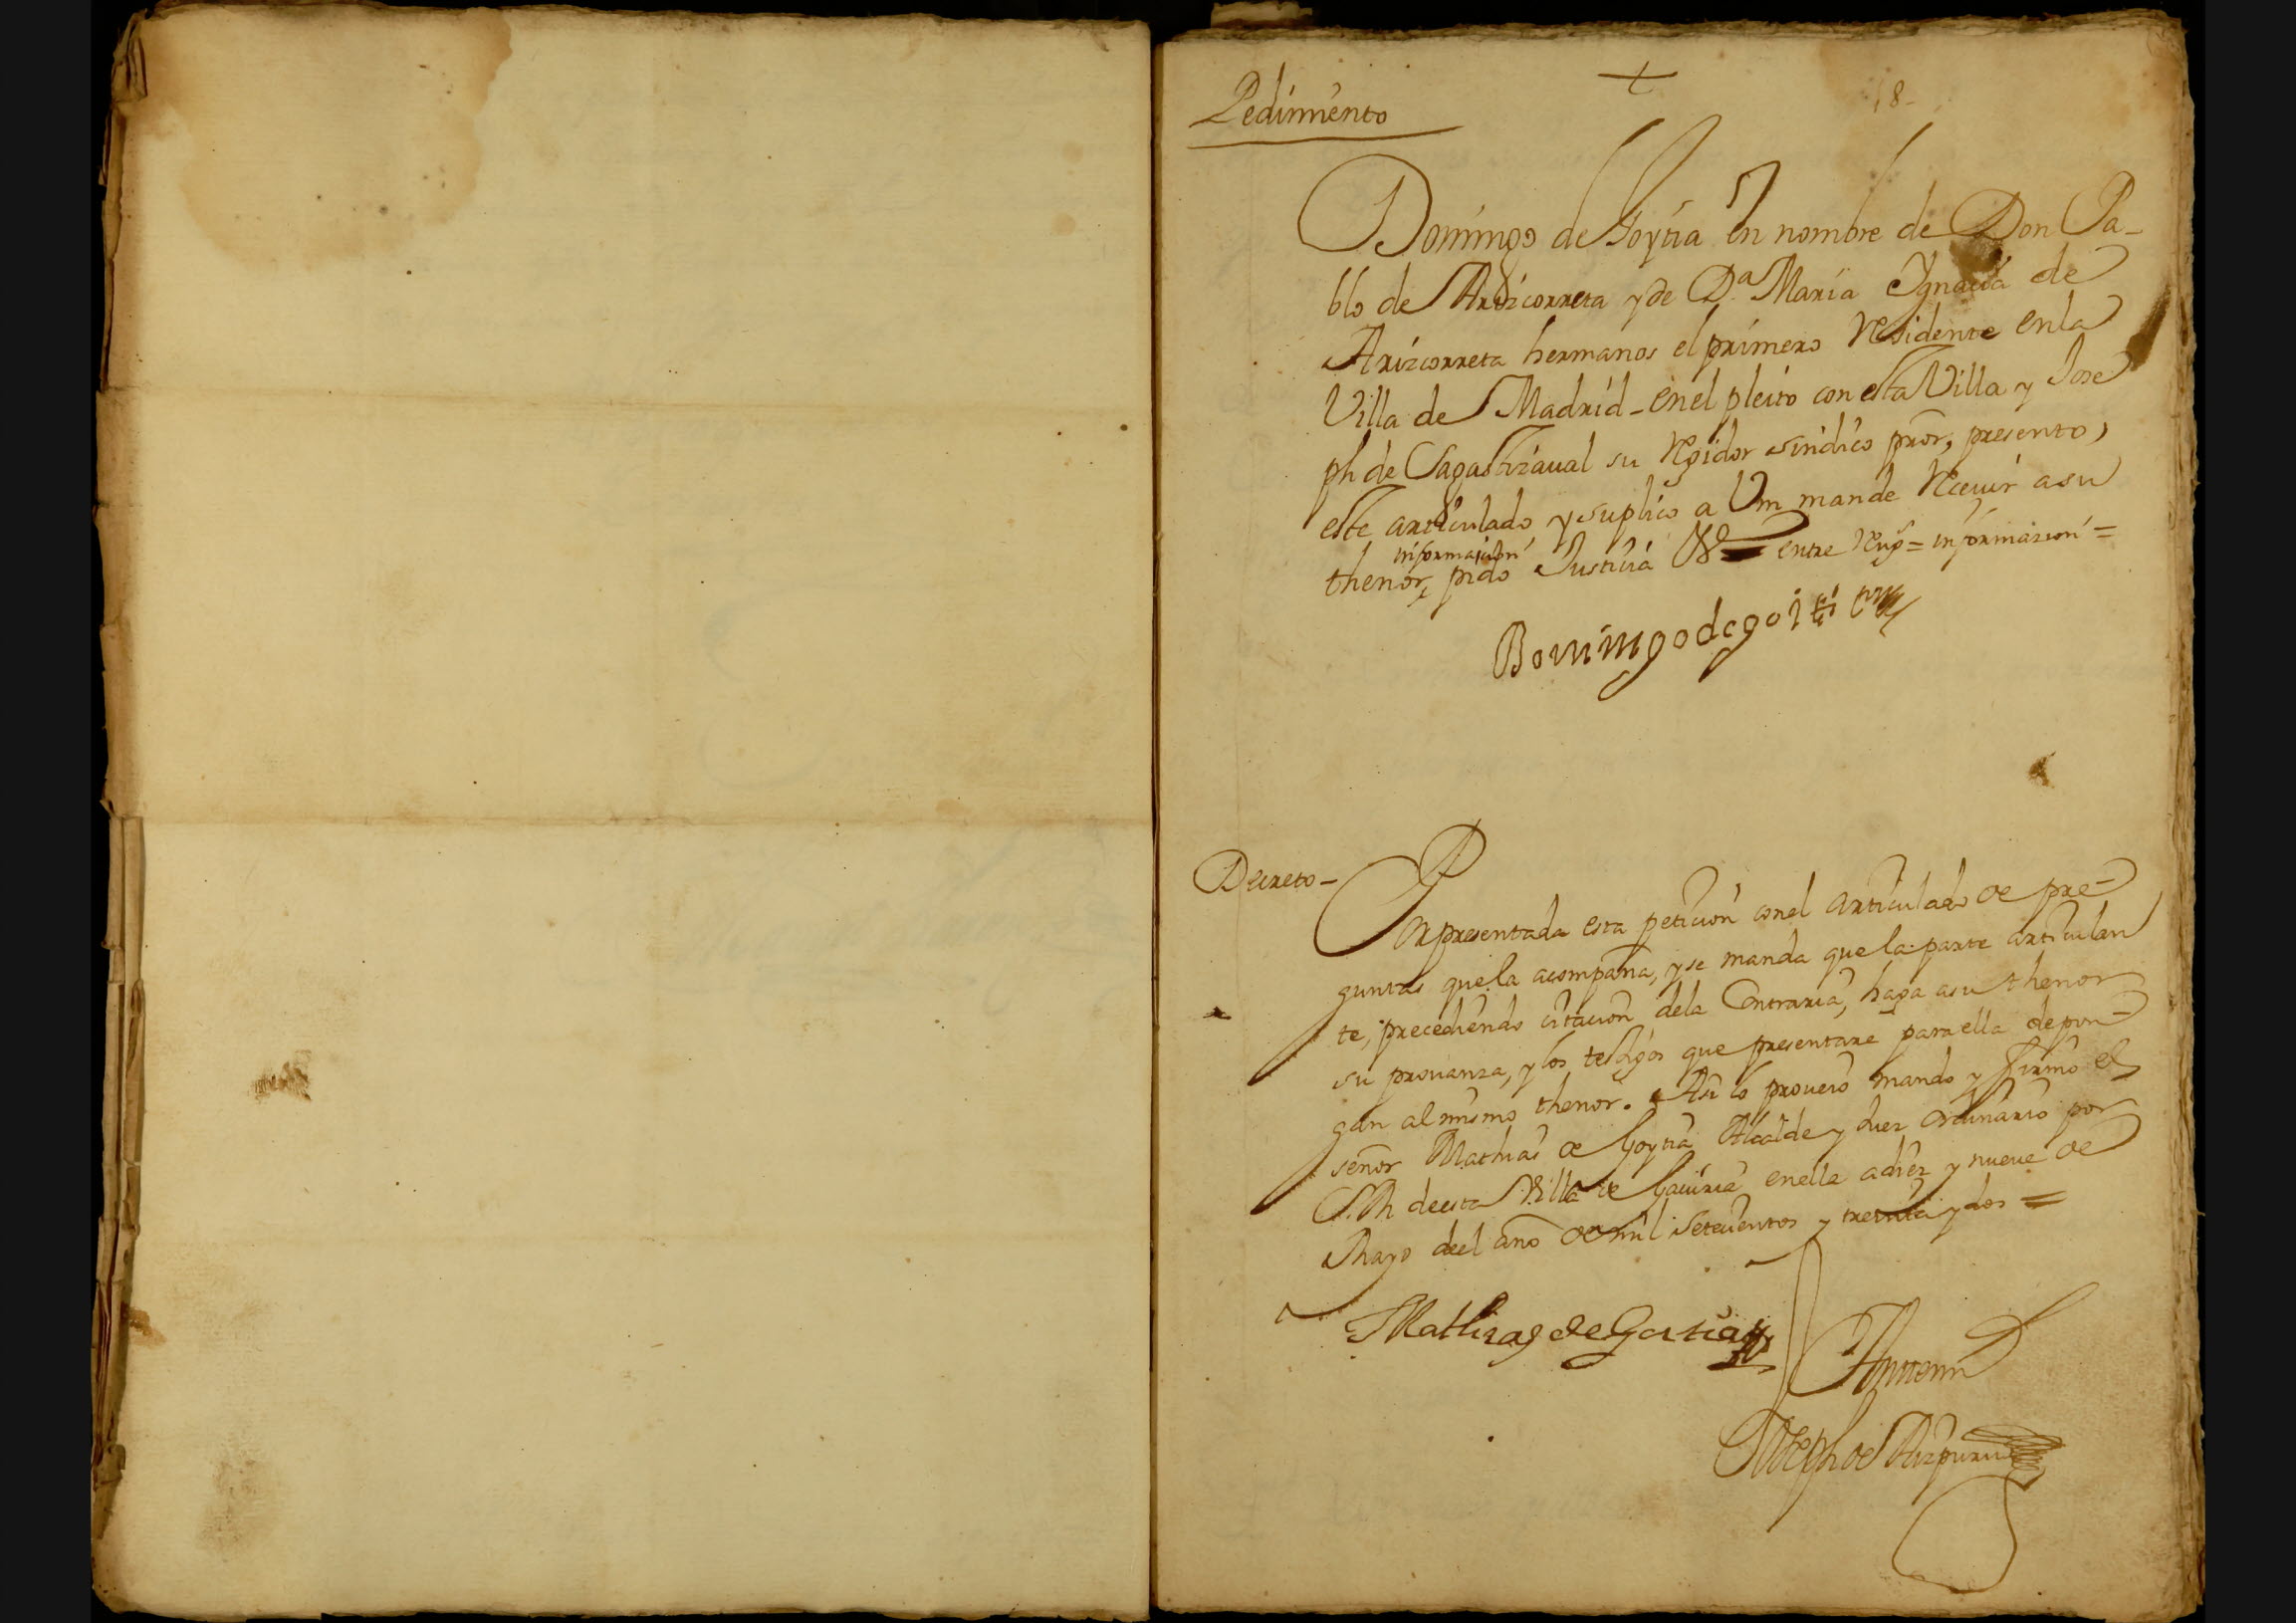 Pedimiento
+
18-
Domingo de Goytia en nombre de Don Pa-
blo de Arizcorreta y de D.ª Maria Ygnacia de
Arizcorreta hermanos el primero Residente enla
Villa de Madrid - enel pleito con esta Villa y Jose
ph de Sagastizaual su Rexidor sindico pror, presento,
este articulado y suplico a Vm mande Receuir asu
informacion
thenor, pido Justicia & entre Reng.s = informazion =
Domingo de goitia
Decreto -
Por presentada esta peticion conel articulado de pre-
guntas quela acompaña, y se manda que la parte articulan
te, precediendo citacion dela Contraria, haga asu thenor
su prouanza, y los testigos que presentare para ella depon-
gan al mismo thenor. Asi lo proueio mando y firmo el
señor Mathias de Goytia Alcalde y Juez ordinario por
S. M. de esta Villa de Gauiria enella adiez y nueue de
Mayo deel año de mil setecientos y treinta y dos =
Mathias de Goitia
Antemi
Joseph de Aizpuru